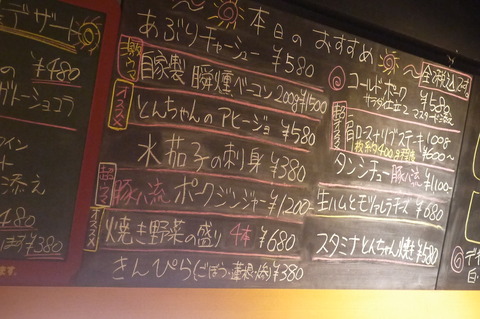 デザート
¥480
ガトーショコラ
添え
480
¥380
ます。
〜本日のおすすめ〜
全て税込です
あぶりチャーシュー ¥580
激ウマ
自家製 瞬燻ベーコン 200g ¥1500
オススメ
とんちゃんのアヒージョ ¥580
水茄子の刺身 ¥380
超ウマ
豚八流 ポークジンジャー ¥1,200-
オススメ
焼き野菜の盛り 4本 ¥680
きんぴら(ごぼう・蓮根・ ) ¥380
コールドポーク ¥580-
サラダ仕立 マスタード添え
肩ローストリブステーキ 100g
¥600〜
タンシチュー 豚八流 ¥1100-
生ハムとモッツァレラチーズ ¥680
スタミナとんちゃん焼き ¥580